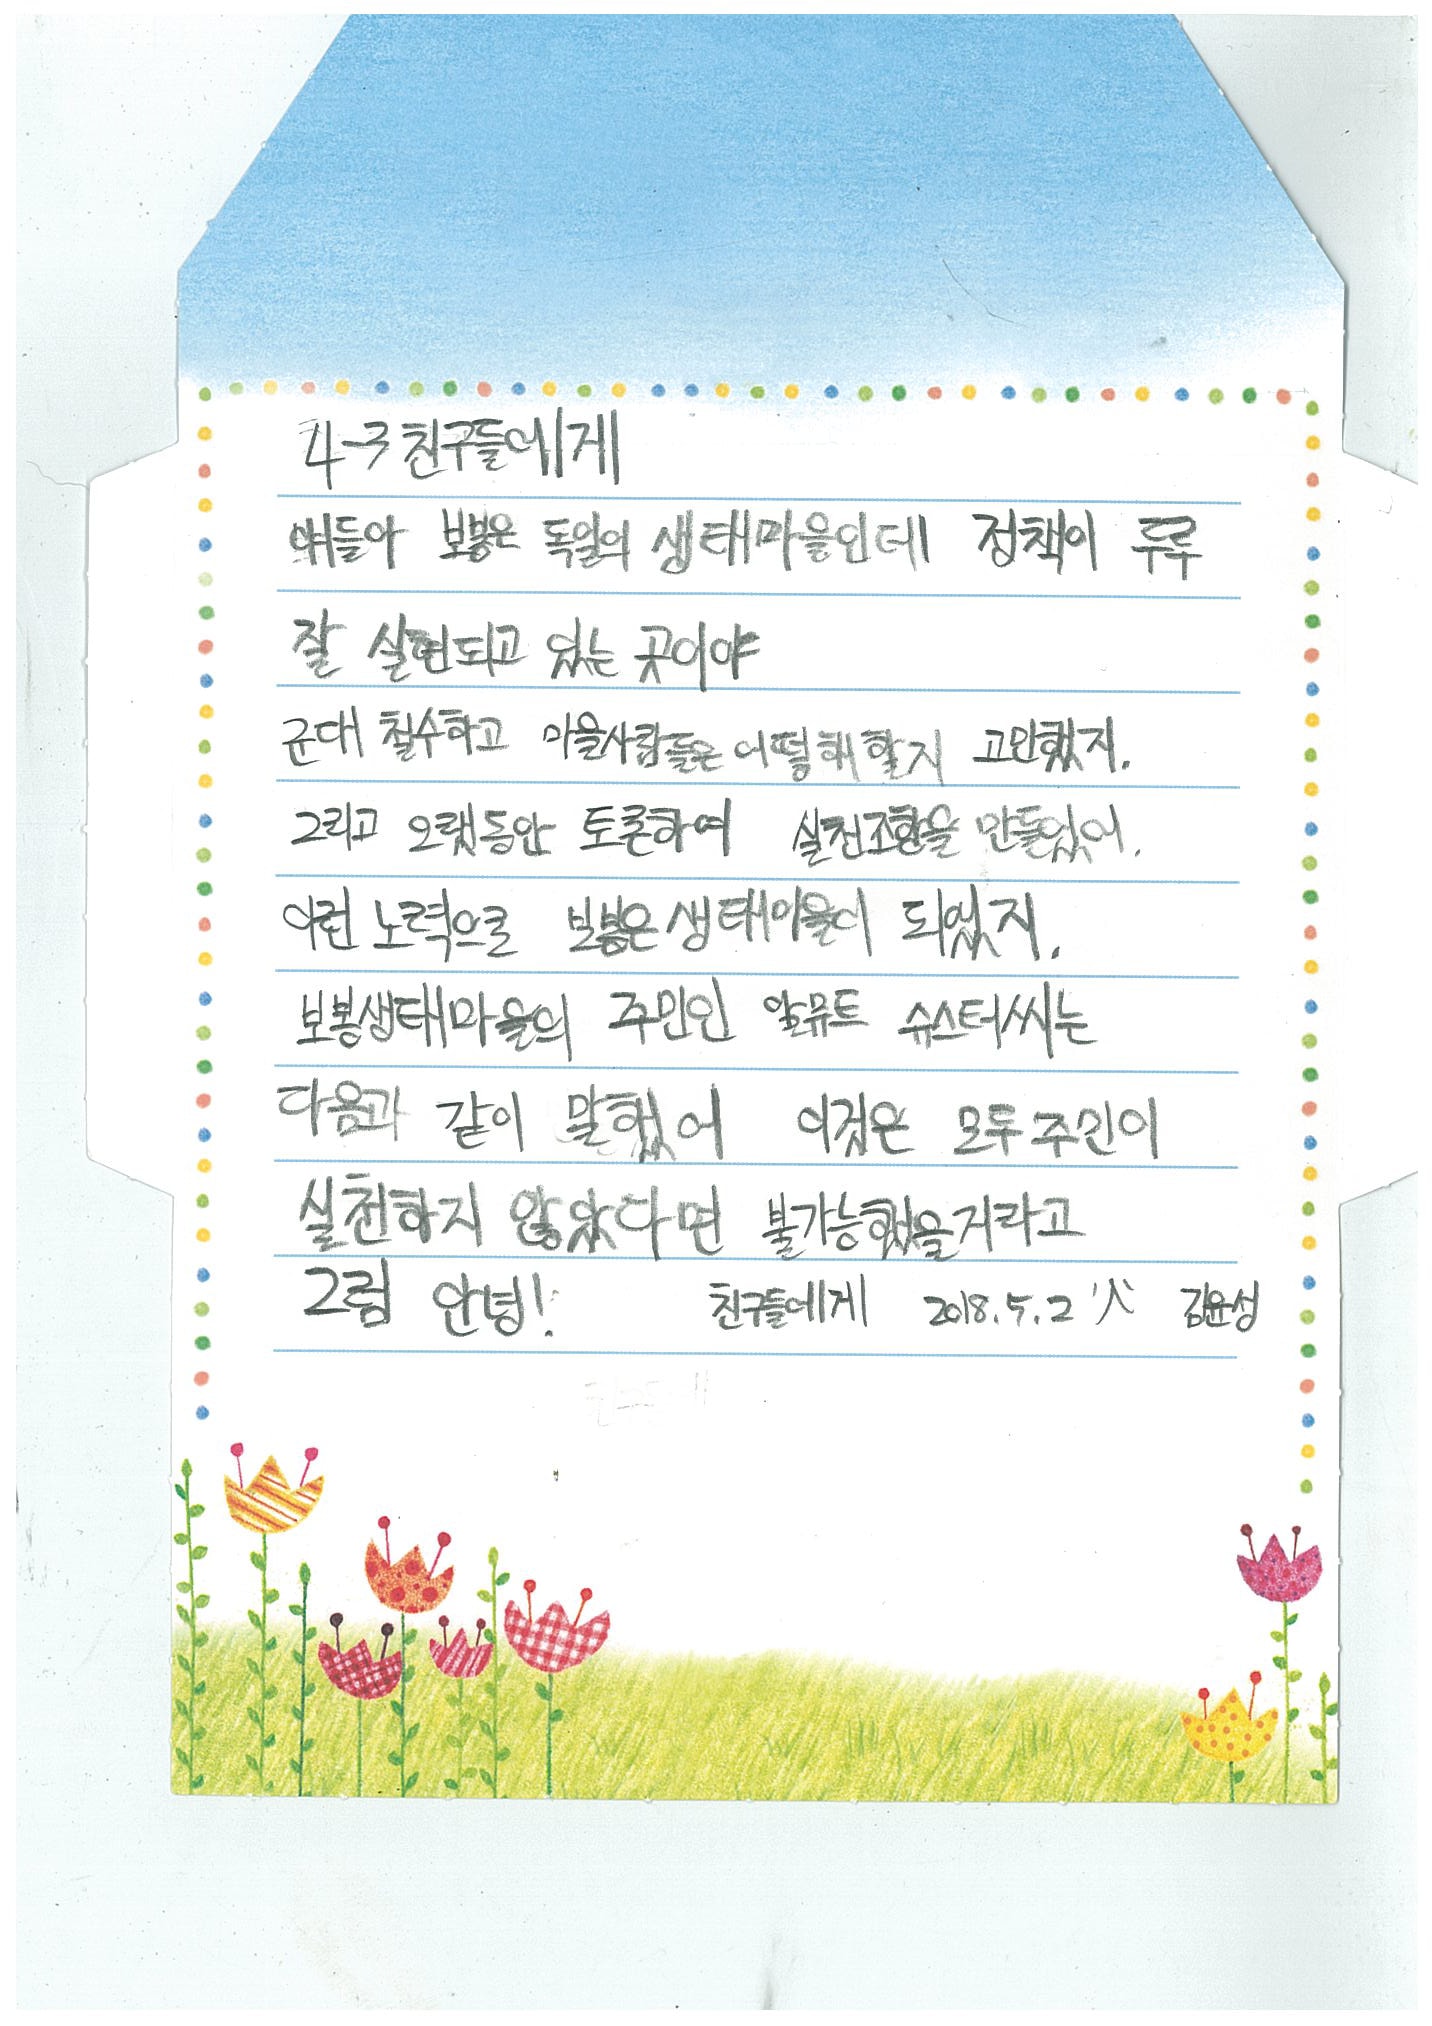 4-3 친구들에게
얘들아 보봉은 독일의 생태마을인데 정책이 두루
잘 실현되고 있는 곳이야
군대 철수하고 마을사람들은 어떻해할지 고민했지.
그리고 오랬동안 토론하여 실천조항을 만들었어.
이런 노력으로 보봉은 생태마을이 되었지.
보봉생태마을의 주민인 알뮤트 슈스터씨는
다음과 같이 말했어 이것은 모두 주민이
실천하지 않았다면 불가능했을거라고
그럼 안녕! 친구들에게 2018.5.2 김윤성